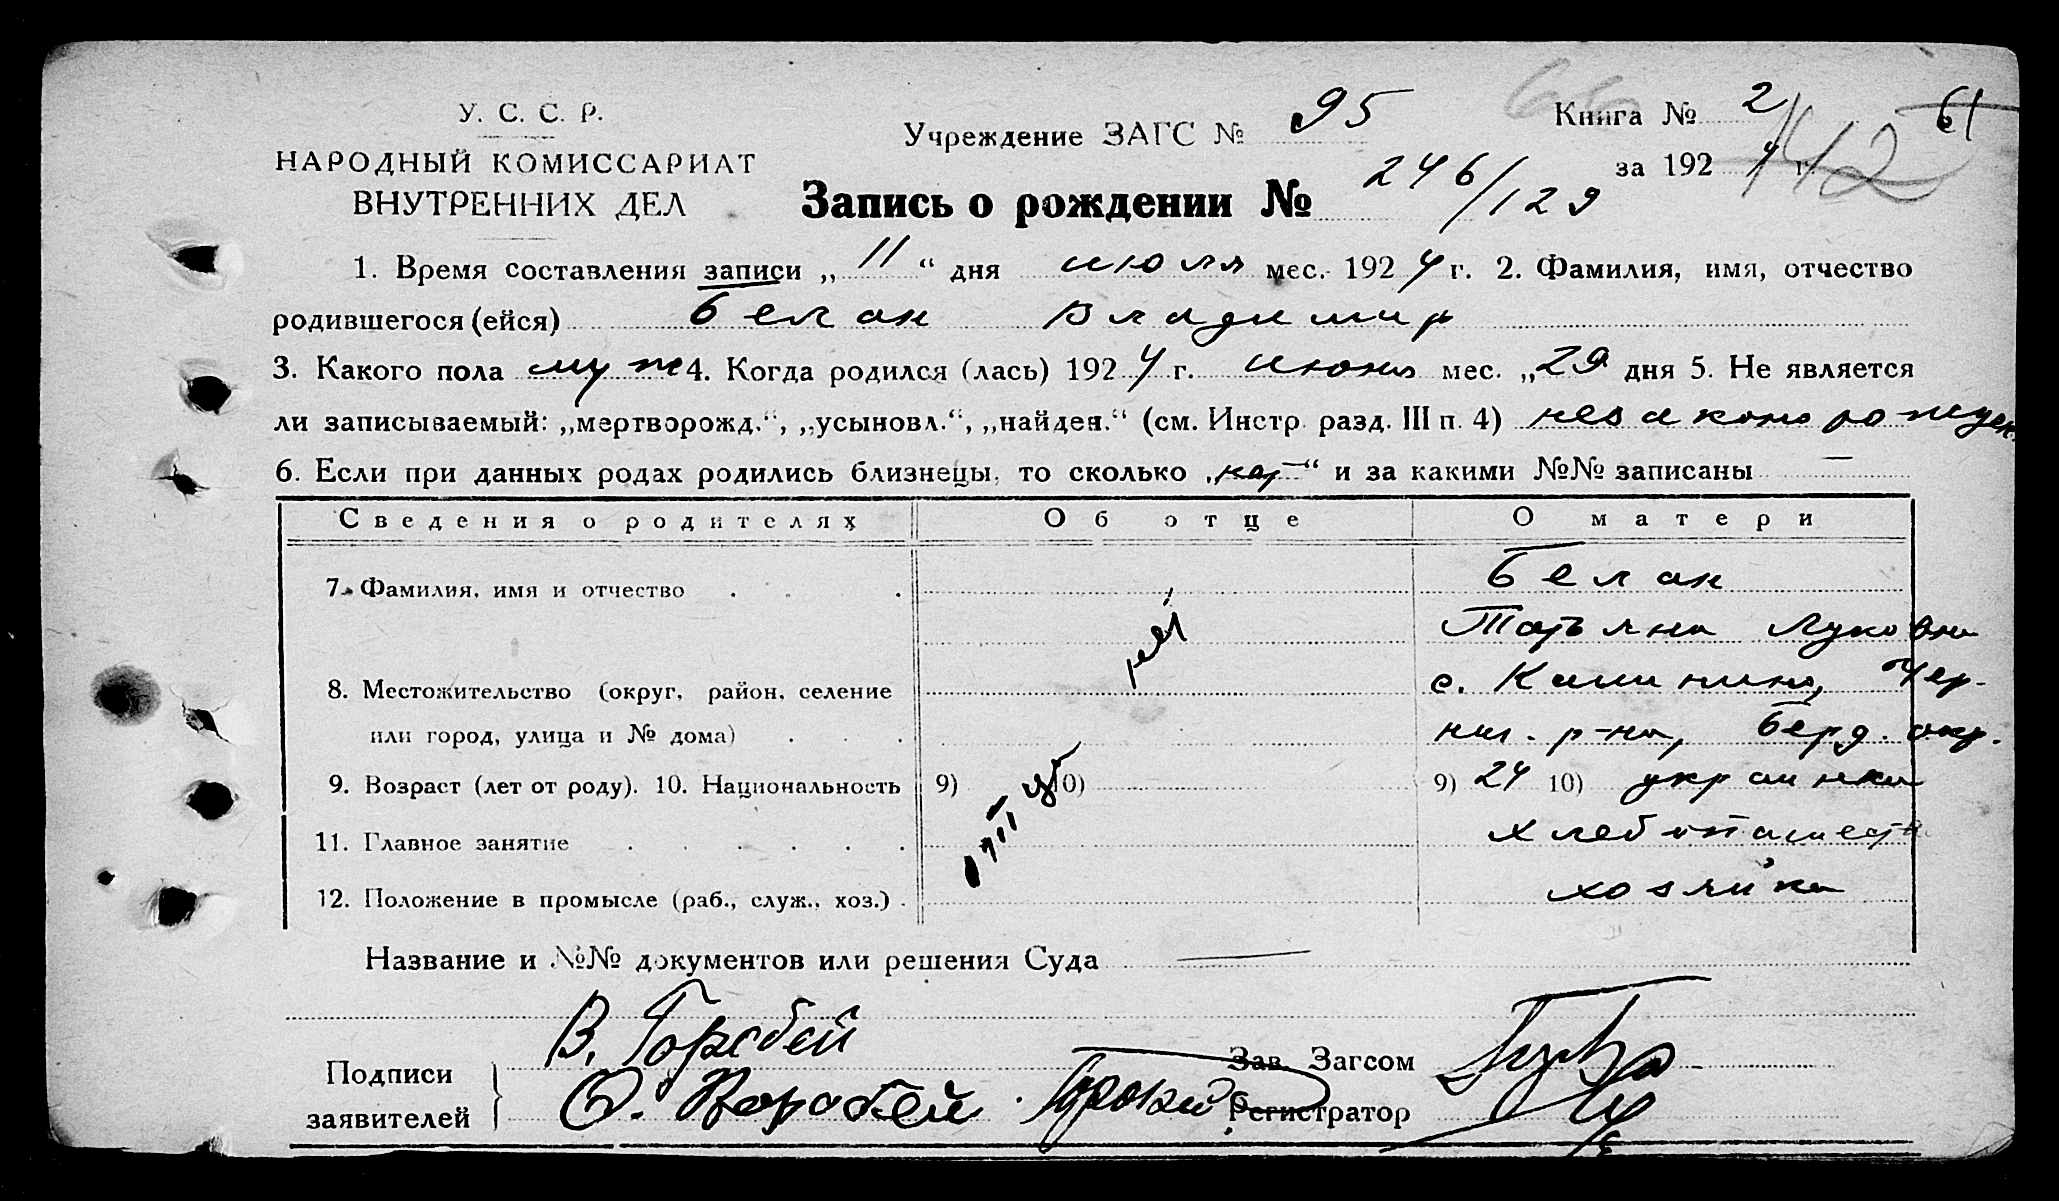 У. С. С. Р.
НАРОДНЫЙ КОМИССАРИАТ
ВНУТРЕННИХ ДЕЛ
66
Учреждение ЗАГС № 95
Книга № 2
61
за 1924 г.
142
Запись о рождении № 246/129
1. Время составления записи „11“ дня июля мес. 1924 г. 2. Фамилия, имя, отчество
родившегося (ейся) Белан Владимир
3. Какого пола муж 4. Когда родился (лась) 1924 г. июня мес. „29 дня 5. Не является
ли записываемый: „мертворожд.“, „усыновл.“, „найден.“ (см. Инстр. разд. III п. 4) незаконорожден
6. Если при данных родах родились близнецы, то сколько „нет“ и за какими №№ записаны —
Сведения о родителях Об отце О матери
7. Фамилия, имя и отчество . . . Белан
Татьяна Луковна
8. Местожительство (округ, район, селение с. Калинино, Чер-
или город, улица и № дома) . . . ниг. р-на, Берд. окр.
9. Возраст (лет от роду). 10. Национальность 9) 10) 9) 24 10) украинка
11. Главное занятие . . . . . . хлебопашеств
12. Положение в промысле (раб., служ., хоз.) . хозяйка
отца нет
Название и №№ документов или решения Суда —
Подписи
заявителей
В. Горобей
О. Воробей
Зав. Загсом
Регистратор